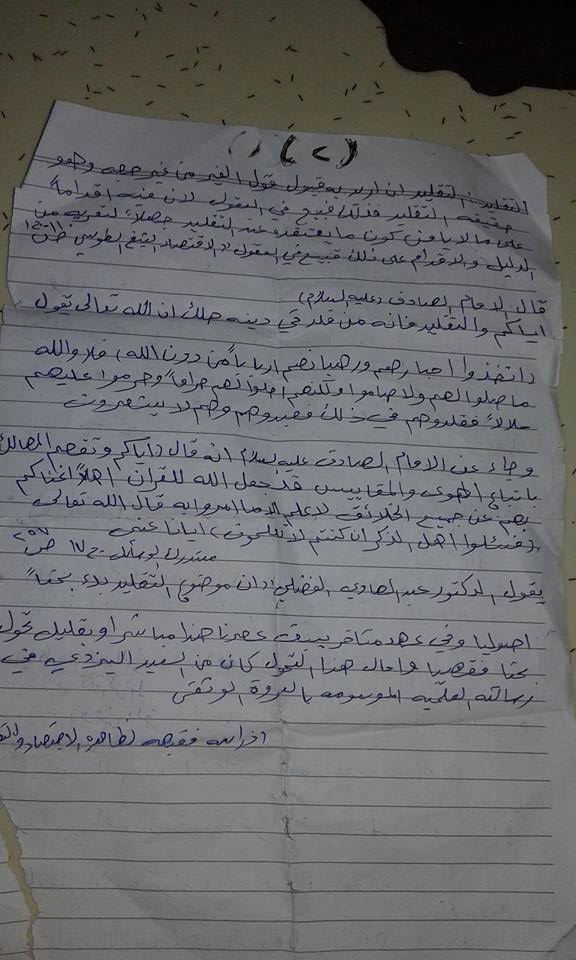 (٢)
التقليد: التقليد ان اريد به قبول قول الغير من غير حجه وهو
حقيقه التقليد فذلك قبيح في العقول لان فيه اقداما
على ما لا يامن كون ما يعتقده عند التقليد جهلاً لتعريه من
الدليل والاقدام على ذلك قبيح في العقول (الاقتصاد الشيخ الطوسي ص
قال الامام الصادق (عليه السلام)
اياكم والتقليد فانه من قلد في دينه هلك ان الله تعالى يقول
(اتخذوا احبارهم ورهبانهم ارباباً من دون الله) فلا والله
ما صلوا لهم ولا صاموا ولكنهم احلوا لهم حراماً وحرموا عليهم
حلالاً فقلدوهم في ذلك فعبدوهم وهم لا يشعرون
وجاء عن الامام الصادق عليه السلام انه قال (اياكم وتقحم المهالك
باتباع الهوى والمقاييس قد جعل الله للقران اهلاً اغناكم
بهم عن جميع الخلائق لا علم الا ما امروا به قال الله تعالى
(فسئلوا اهل الذكر ان كنتم لا تعلمون) ايانا عنى
مستدرك الوسائل ج ١٧ ص ٢٥٧
يقول الدكتور عبد الهادي الفضلي (ان موضوع التقليد بدء بحثاً
اصوليا وفي عهد متاخر يسبق عصرنا هذا مباشر او بقليل تحول
بحثا فقهيا واخال هذا التحول كان من السيد اليزدي في
رسالته العلميه الموسومه بالعروة الوثقى
دراسه فقهيه لظاهره الاجتهاد والتق